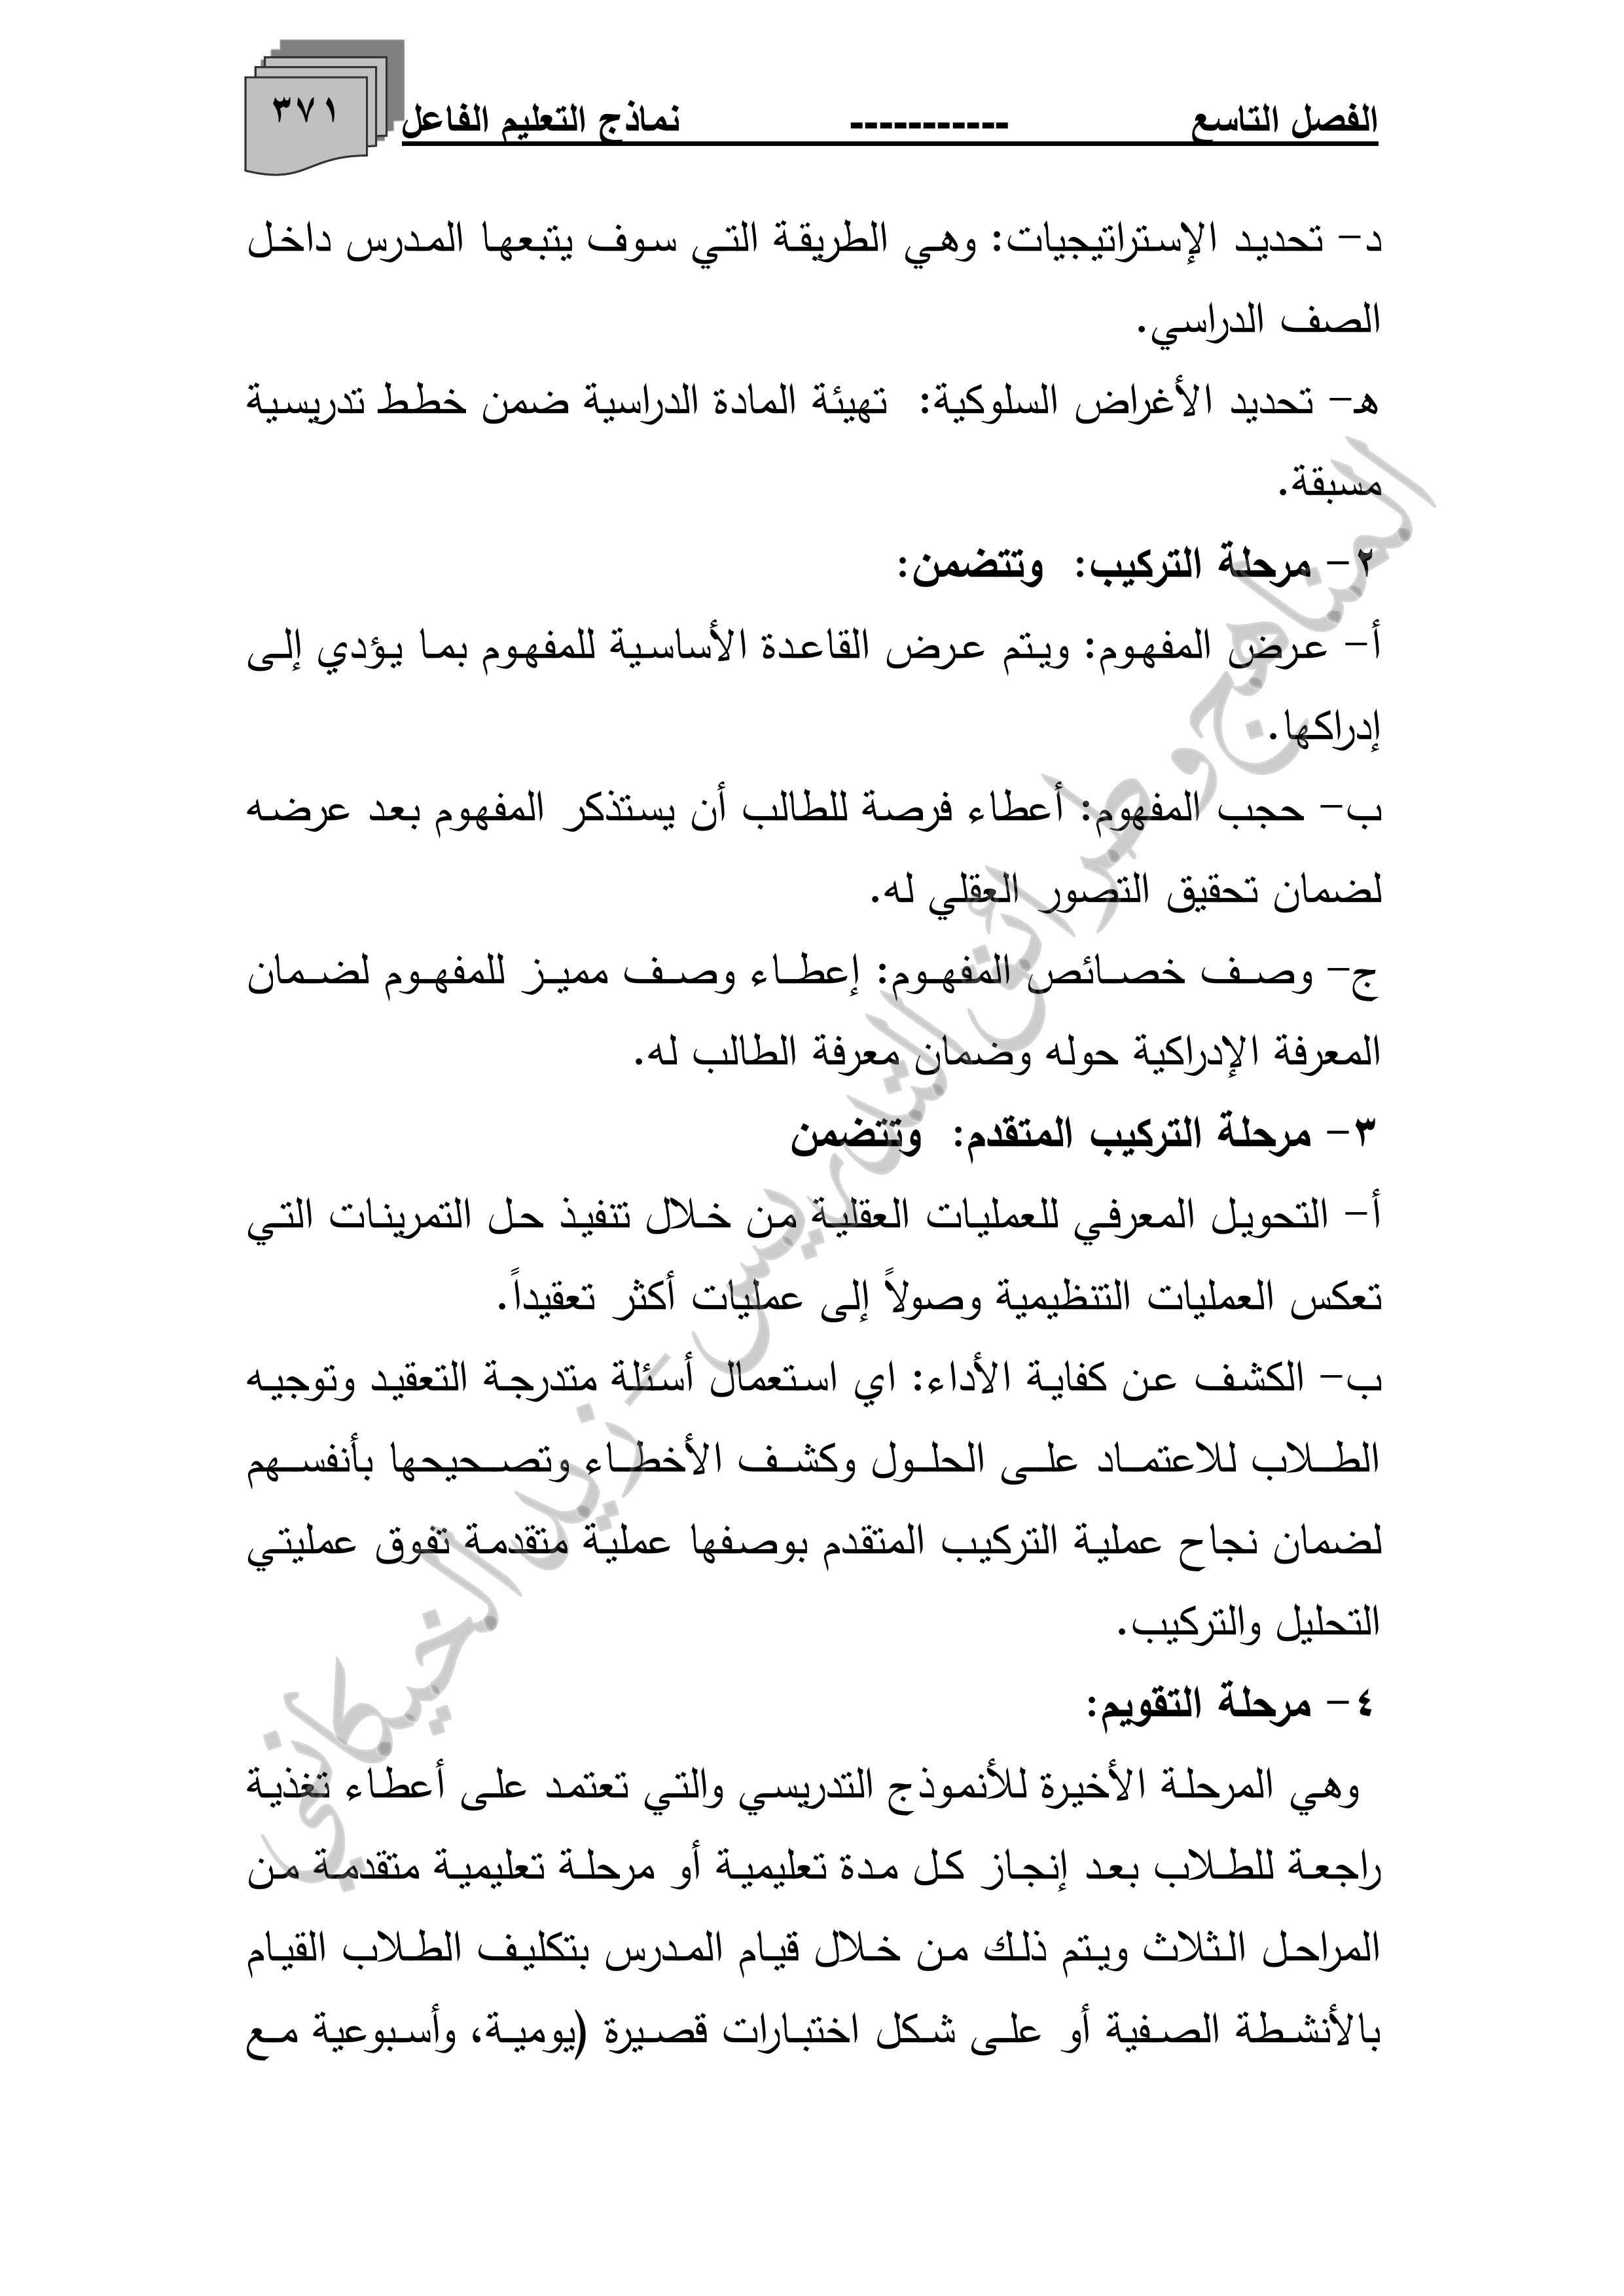 الفصل التاسع ----------- نماذج التعليم الفاعل
٣٧١
د- تحديد الإستراتيجيات: وهي الطريقة التي سوف يتبعها المدرس داخل
الصف الدراسي.
هـ- تحديد الأغراض السلوكية: تهيئة المادة الدراسية ضمن خطط تدريسية
مسبقة.
٢- مرحلة التركيب: وتتضمن:
أ- عرض المفهوم: ويتم عرض القاعدة الأساسية للمفهوم بما يؤدي إلى
إدراكها.
ب- حجب المفهوم: أعطاء فرصة للطالب أن يستذكر المفهوم بعد عرضه
لضمان تحقيق التصور العقلي له.
ج- وصف خصائص المفهوم: إعطاء وصف مميز للمفهوم لضمان
المعرفة الإدراكية حوله وضمان معرفة الطالب له.
٣- مرحلة التركيب المتقدم: وتتضمن
أ- التحويل المعرفي للعمليات العقلية من خلال تنفيذ حل التمرينات التي
تعكس العمليات التنظيمية وصولاً إلى عمليات أكثر تعقيداً.
ب- الكشف عن كفاية الأداء: اي استعمال أسئلة متدرجة التعقيد وتوجيه
الطلاب للاعتماد على الحلول وكشف الأخطاء وتصحيحها بأنفسهم
لضمان نجاح عملية التركيب المتقدم بوصفها عملية متقدمة تفوق عمليتي
التحليل والتركيب.
٤- مرحلة التقويم:
وهي المرحلة الأخيرة للأنموذج التدريسي والتي تعتمد على أعطاء تغذية
راجعة للطلاب بعد إنجاز كل مدة تعليمية أو مرحلة تعليمية متقدمة من
المراحل الثلاث ويتم ذلك من خلال قيام المدرس بتكليف الطلاب القيام
بالأنشطة الصفية أو على شكل اختبارات قصيرة (يومية، وأسبوعية مع
المناهج وطرائق التدريس - زيد الخيكاني